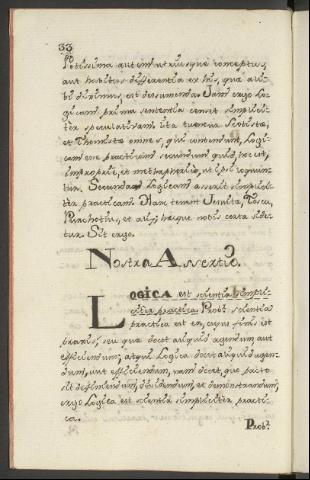 33
Potissima autem utriusque conceptus,
aut habitus differentia ex his, quæ ali-
bi diximus, est desumenda. Jam ergo Lo-
gicam prima sententia censet simplici-
ter speculativam, ita tuentur Scotistæ,
et Thomistæ omnes, qui contendunt, Logi-
cam esse practicam secundum quid, hoc est,
improprie, et metaphorice, ut ipsi loquun-
tur. Secunda Logicam asserit simplici-
ter practicam. Hanc tenent
et alij; hæcque nobis certa vide-
tur. Sit ergo.
Nostra Assertio.
Logica est scientia simpli-
citer practica. Prob.r scientia
practica est ea, cujus finis est
praxis, seu quæ docet aliquid agendum aut
efficiendum; atqui Logica docet aliquid agen-
dum, aut efficiendum, nam docet, quo pacto
sit definiendum, dividendum, et demonstrandum,
ergo Logica est scientia simpliciter practi-
ca.
Prob.r